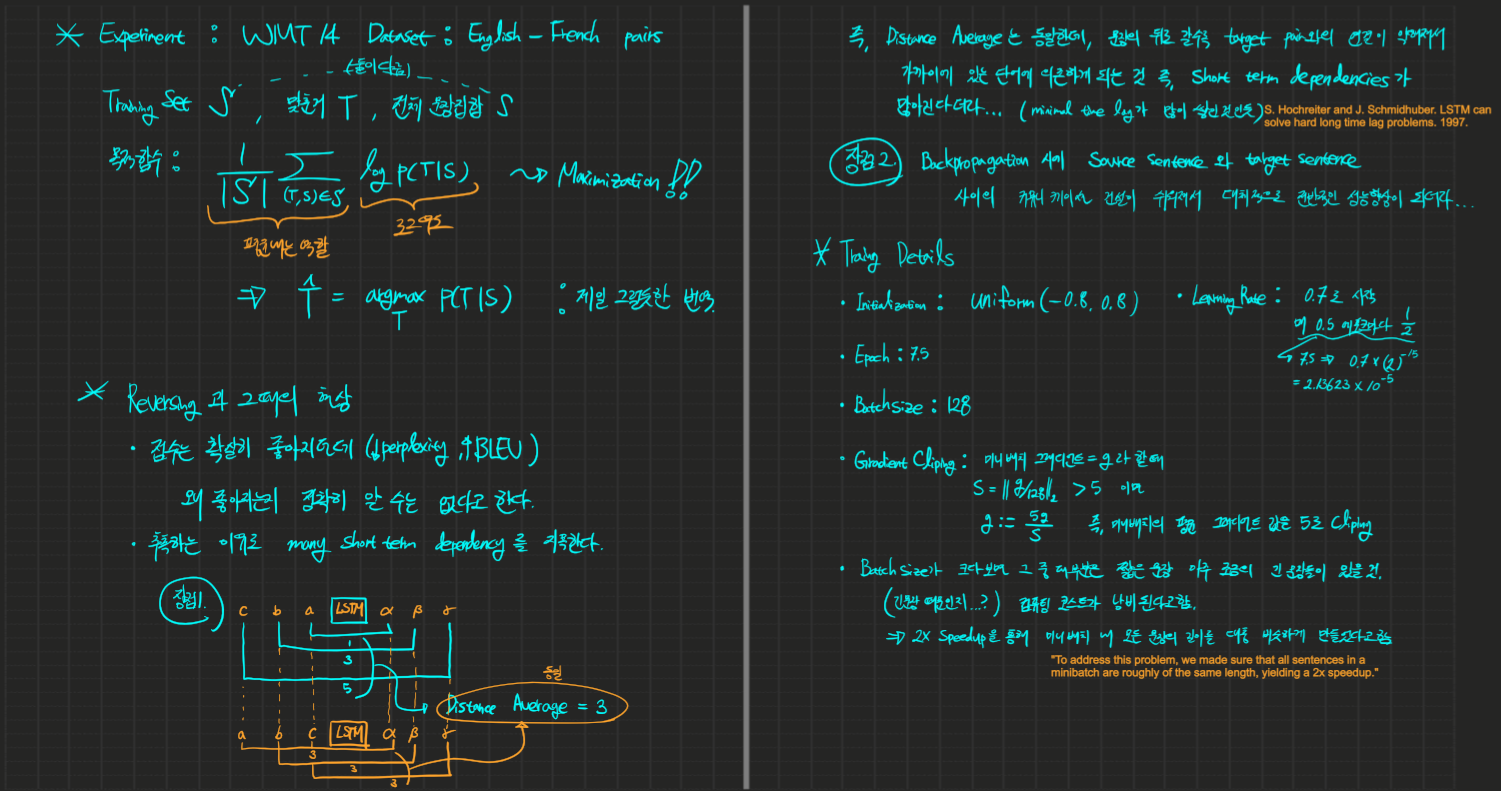 * Experiment : WMT 14 Dataset : English - French pairs
(둘이 다름)
Training Set S , 맞춘거 T , 전체 문장집합 S
목적함수 : 1/|S| Σ (T,S)∈S log p(T|S) ⇝ Maximization!!
평균내는 역할
⇒ T̂ = argmax T p(T|S) : 제일 그럴듯한 번역.
* Reversing 과 그때의 현상
· 점수는 확실히 좋아지는데 (↓perplexity, ↑BLEU)
왜 좋아지는지 정확히 알 수는 없다고 한다.
· 추측하는 이유로 many short term dependency를 지목한다.
장점1.
c b a LSTM α β γ
1
3
5
동일
Distance Average = 3
a b c LSTM α β γ
3
3
3
즉, Distance Average는 동일한데, 문장의 뒤로 갈수록 target pair와의 연관이 약해져서
가까이에 있는 단어에 의존하게 되는 것 즉, Short term dependencies가
많아진다더라... (minimal time lag가 많이 줄인것인듯)
S. Hochreiter and J. Schmidhuber. LSTM can
solve hard long time lag problems. 1997.
장점2. Backpropagation 시에 Source sentence 와 target sentence
사이의 커뮤니케이션 건설이 쉬워져서 대체적으로 전반적인 성능향상이 되더라...
* Traing Details
· Initialization : uniform(-0.8, 0.8)
· Learning Rate : 0.7로 시작
매 0.5 에포크마다 1/2
7.5 ⇒ 0.7×(2)^-15
= 2.13623 × 10^-5
· Epoch : 7.5
· Batch size : 128
· Gradient Cliping : 미니배치 그래디언트 = g 라 할 때
S = ||g/128||₂ > 5 이면
g := 5g/S 즉, 미니배치의 평균 그래디언트 값을 5로 Cliping
· Batch Size가 크다보면 그 중 대부분은 짧은 문장 아주 조금의 긴 문장들이 있을 것.
(긴문장 때문인지...?) 컴퓨팅 코스트가 낭비된다고함.
⇒ 2X Speedup을 통해 미니배치 내 모든 문장의 길이를 대충 비슷하게 만들었다고함
"To address this problem, we made sure that all sentences in a
minibatch are roughly of the same length, yielding a 2x speedup."